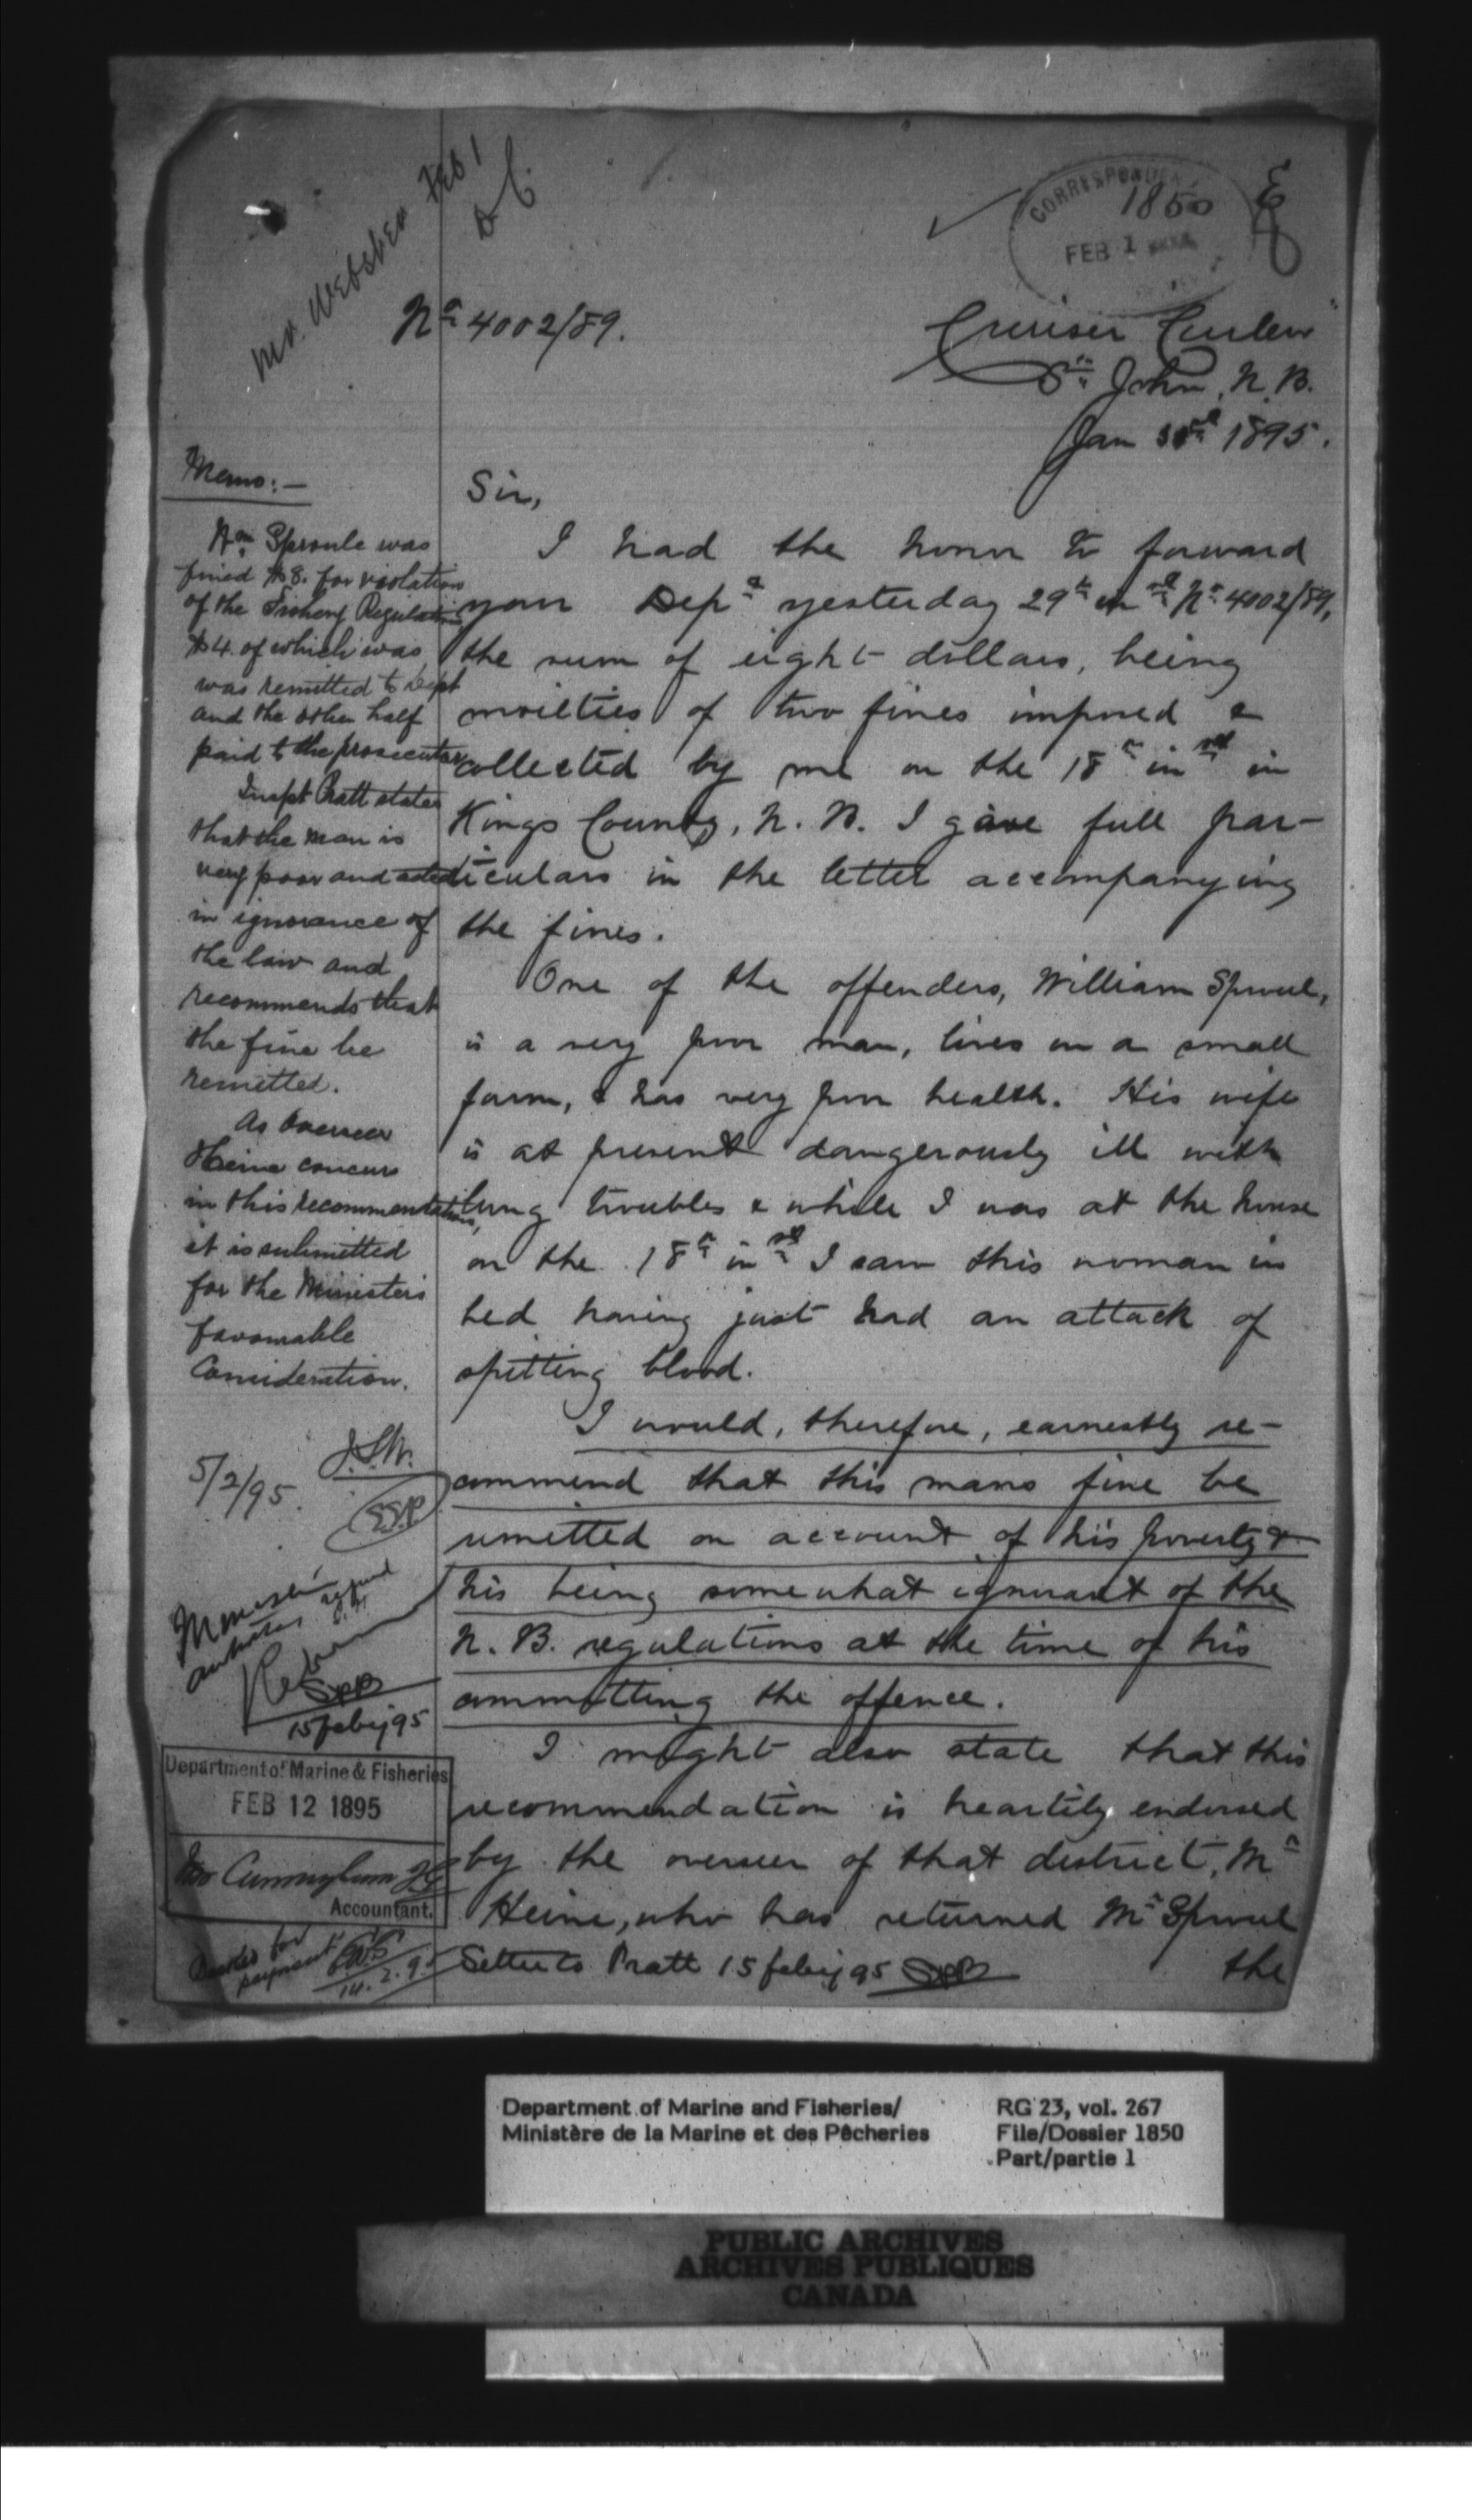 Mr. Webster Feb 1
CORRESPONDEN
1850
FEB 1
No 4002/89.
Cruiser Curlew
St. John, N. B.
Jan 30th 1895.
Sir,
I had the honor to forward
your Dept yesterday 29th inst No 4002/89,
the sum of eight dollars, being
moieties of two fines imposed &
collected by me on the 18th inst in
Kings County, N. B. I gave full par-
ticulars in the letter accompanying
the fines.
One of the offenders, William Sproul,
is a very poor man, lives on a small
farm, & has very poor health. His wife
is at present dangerously ill with
lung troubles & while I was at the house
on the 18th inst I saw this woman in
bed having just had an attack of
spitting blood.
I would, therefore, earnestly re-
commend that this mans fine be
remitted on account of his poverty &
his being somewhat ignorant of the
N. B. regulations at the time of his
committing the offence.
I might also state that this
recommendation is heartily endorsed
by the overseer of that district, Mr
Heine, who has returned Mr Sproul
the
Letter to Pratt 15 feby 95 SPB
Memo:—
Wm Sproule was
fined $8. for violation
of the Fishery Regulations
$4. of which was
was remitted to Dept
and the other half
paid to the prosecutor
Inspt Pratt states
that the man is
very poor and acted
in ignorance of
the law and
recommends that
the fine be
remitted.
As Overseer
Heine concurs
in this recommendation,
it is submitted
for the Ministers
favourable
Consideration.
5/2/95.
Minister
15 feby 95
Department of Marine & Fisheries
FEB 12 1895
Mr Cunningham
Accountant.
payment
14.2.95
Department of Marine and Fisheries/
Ministère de la Marine et des Pêcheries
RG 23, vol. 267
File/Dossier 1850
Part/partie 1
PUBLIC ARCHIVES
ARCHIVES PUBLIQUES
CANADA